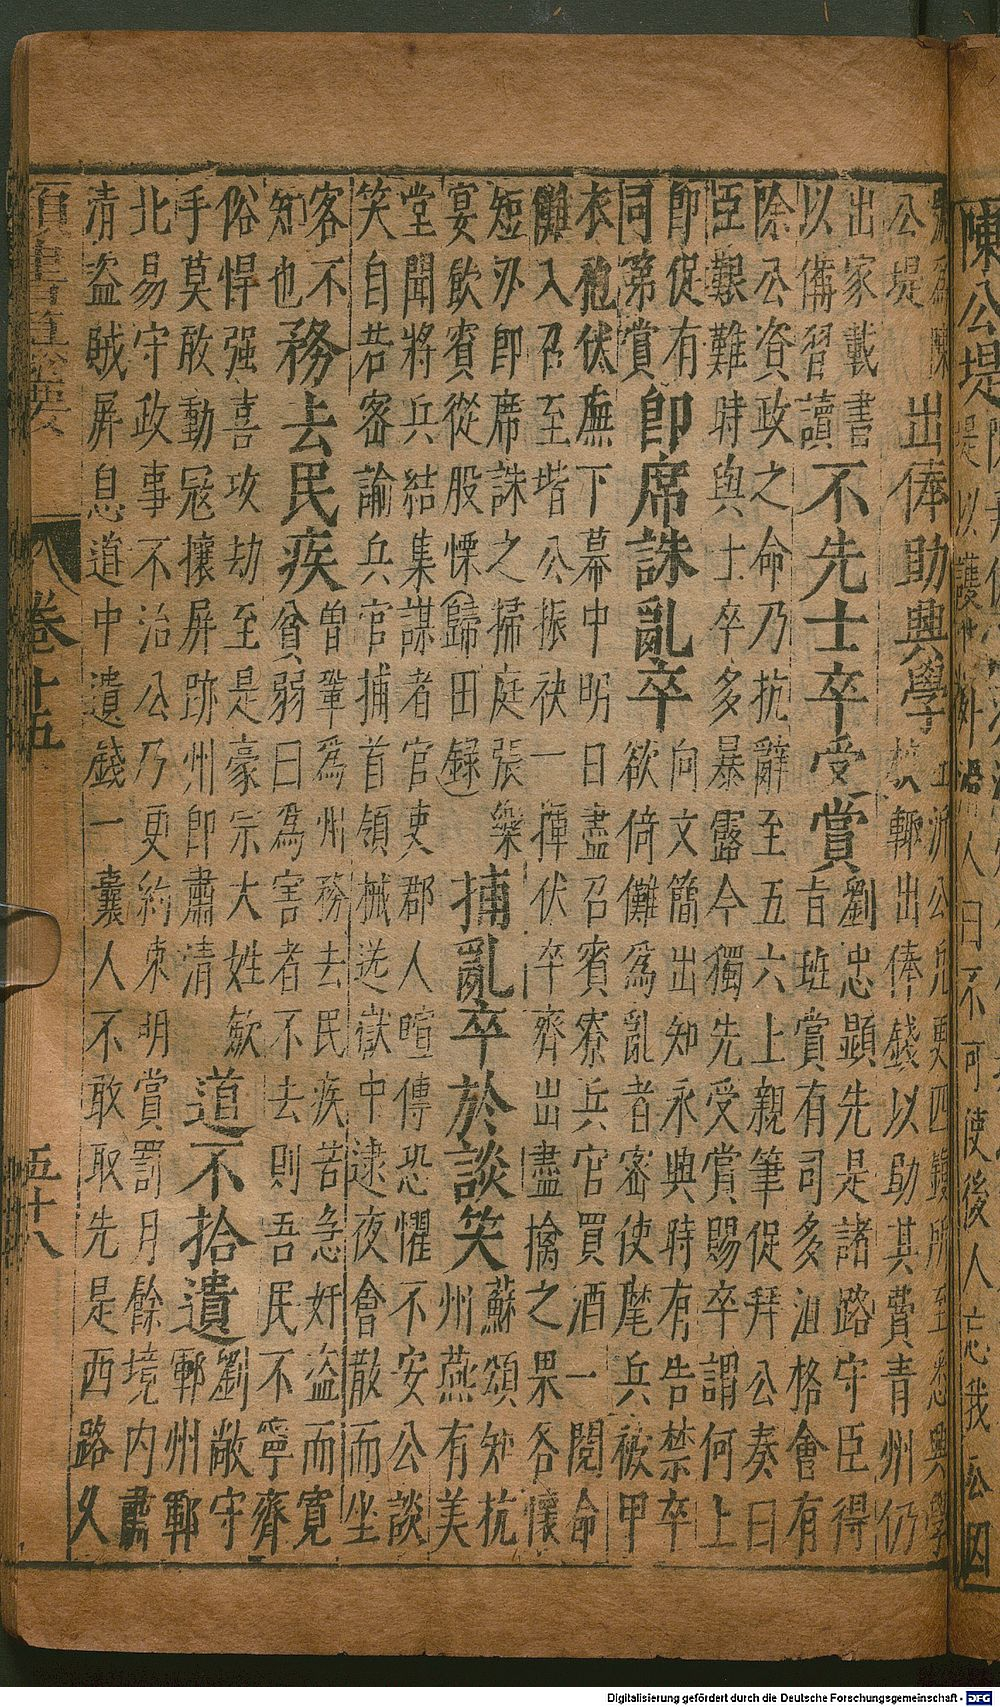 陳公堤
人曰不可使後人忘我
號為陳
公堤
出俸助興學
公凡更四鎮所至悉興學
校輒出俸錢以助其費青州仍
出家載書
以俻習讀
不先士卒受賞
劉忠顯先是諸路守臣得
旨班賞有司多沮格會有
除公資政之命乃抗辭至五六上親筆促拜公奏曰
臣艱難時與士卒多暴露今獨先受賞賜卒謂何上
即促有
同第賞
即席誅亂卒
向文簡出知永興時有告禁卒
欲倚儺為亂者密使麾兵被甲
衣袍伏廡下幕中明日盡召賓寮兵官買酒一閱命
儺入召至堦公振袂一揮伏卒齊出盡擒之果各懷
短刃即席誅之掃庭張樂
宴飲賓從股慄(歸田録)
捕亂卒於談笑
蘇頌知杭
州燕有美
堂聞將兵結集謀者官吏郡人喧傳恐懼不安公談
笑自若密諭兵官捕首領械送獄中逮夜會散而坐
客不
知也
務去民疾
曾鞏為州務去民疾苦急奸盗而寛
貧弱曰為害者不去則吾民不寧齊
俗悍强喜攻劫至是豪宗大姓歛
手莫敢動冦攘屏跡州即肅清
道不拾遺
劉敞守
鄆州鄆
北易守政事不治公乃更約束明賞罰月餘境内肅
清盗賊屏息道中遺錢一囊人不敢取先是西路久
卷十五
五十八
Digitalisierung gefördert durch die Deutsche Forschungsgemeinschaft - DFG